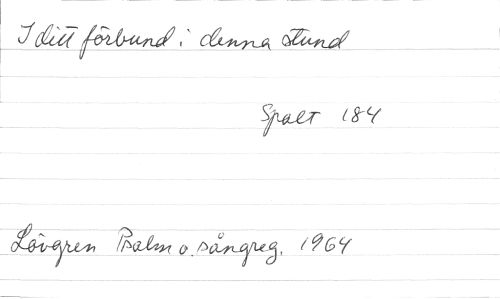 I ditt förbund i denna stund
Spalt 184
Lövgren Psalm o. sångreg. 1964